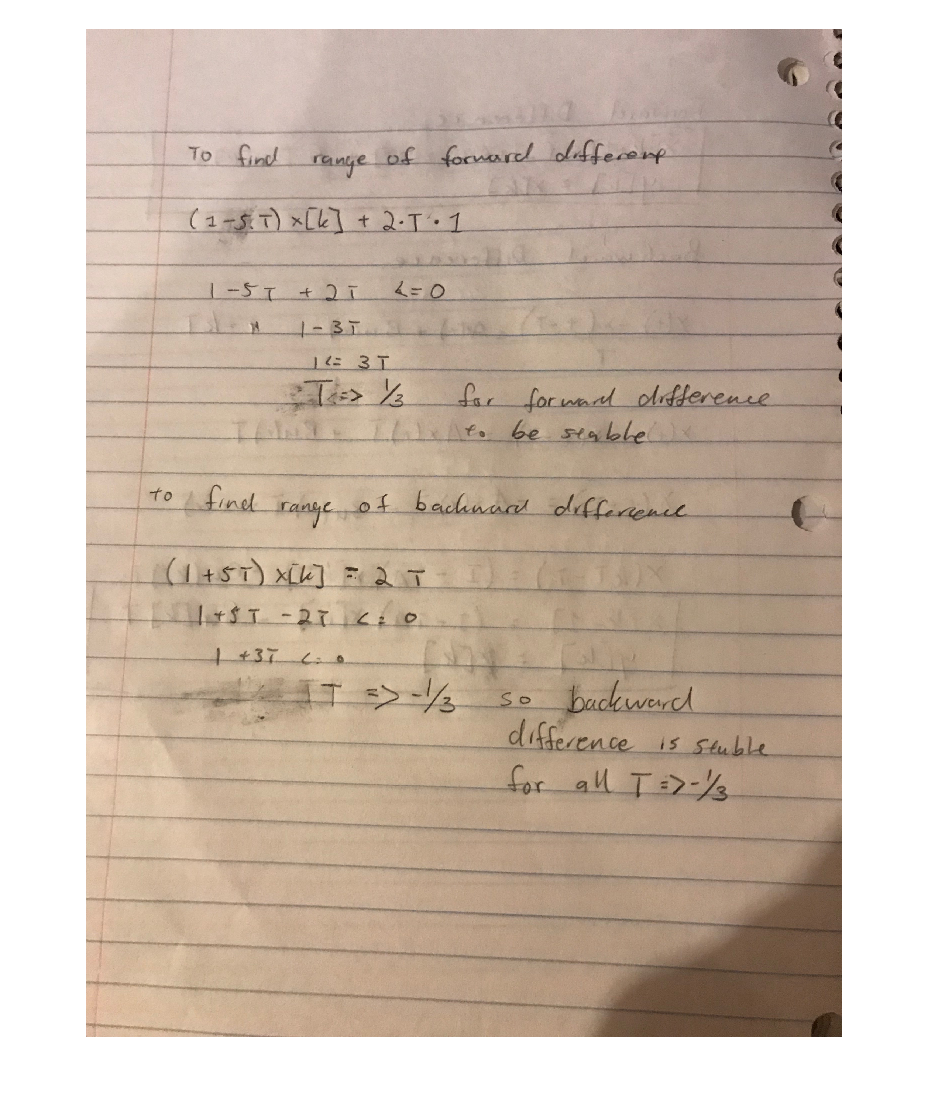 To find range of forward difference
(1-5.T) x[k] + 2.T.1
1-5T + 2T <=0
1-3T
1<= 3T
T=> 1/3 for forward difference
to be stable
to find range of backward difference
(1+5T) x[k] = 2T
1+5T -2T <= 0
1 +3T <= 0
T => -1/3 so backward
difference is stable
for all T=>-1/3